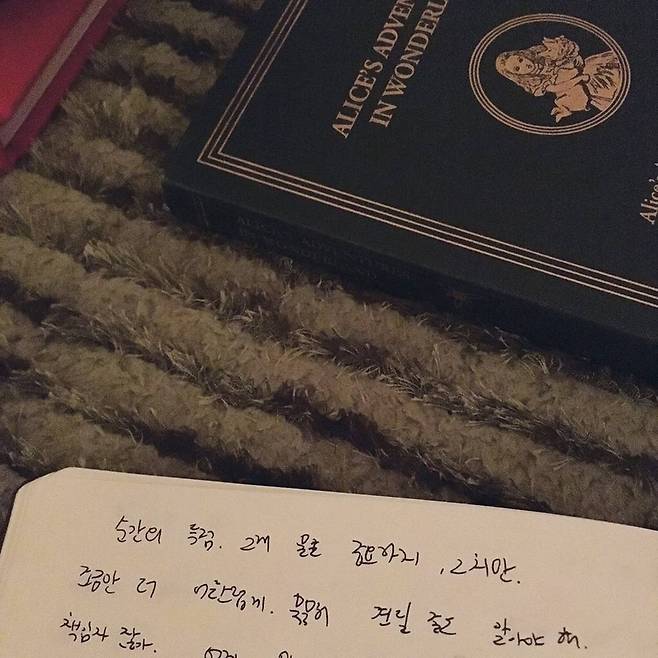 ALICE'S ADVEN
IN WONDERL
Alice's
ALICE'S ADVENTURES
IN WONDERLAND
순간의 득점. 그게 물론 중요하지, 그치만.
조금만 더 어른스럽게. 묵묵히 견딜 줄도 알아야 해.
책임자 잖아.